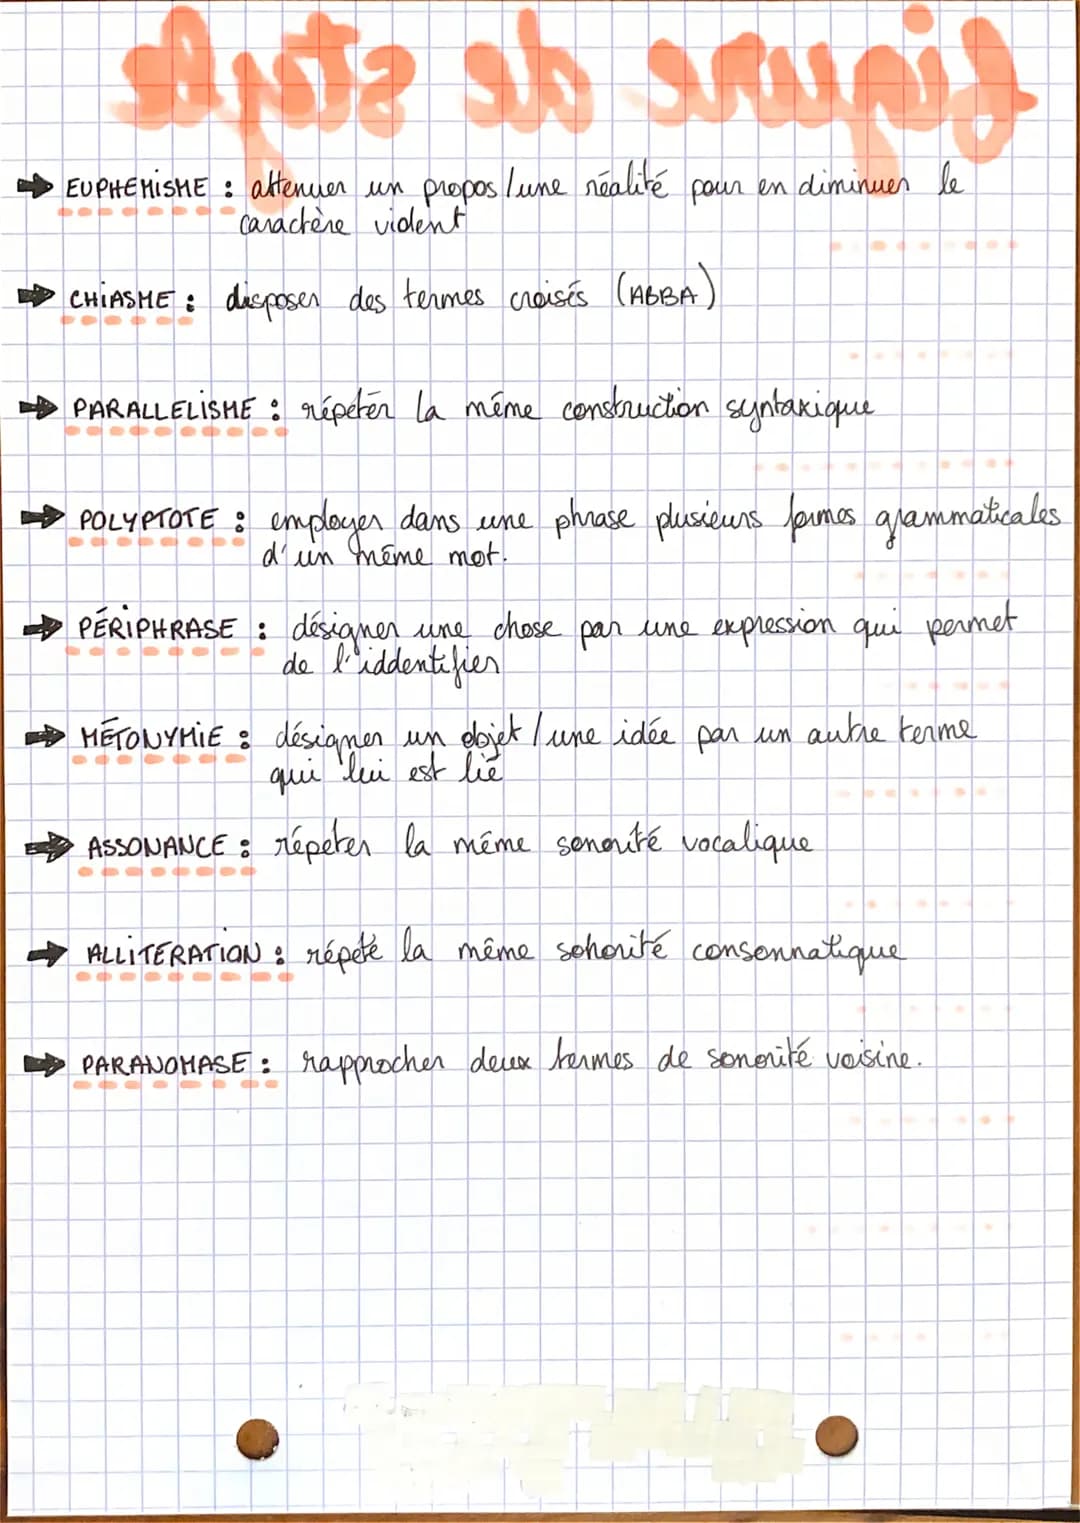 figure de style
➡ EUPHEMISME : attenuer un propos/une réalité pour en diminuer le
caractère vident
➡ CHIASME : disposer des termes croisés (ABBA)
➡ PARALLELISME : répéter la même construction syntaxique
➡ POLYPTOTE : employer dans une phrase plusieurs formes grammaticales
d'un même mot.
➡ PÉRIPHRASE : désigner une chose par une expression qui permet
de l'iddentifier
➡ MÉTONYMIE : désigner un objet/une idée par un autre terme
qui lui est lié
➡ ASSONANCE : répéter la même sonorité vocalique
➡ ALLITERATION : répété la même sonorité consonnatique
➡ PARANOMASE : rapprocher deux termes de sonorité voisine.